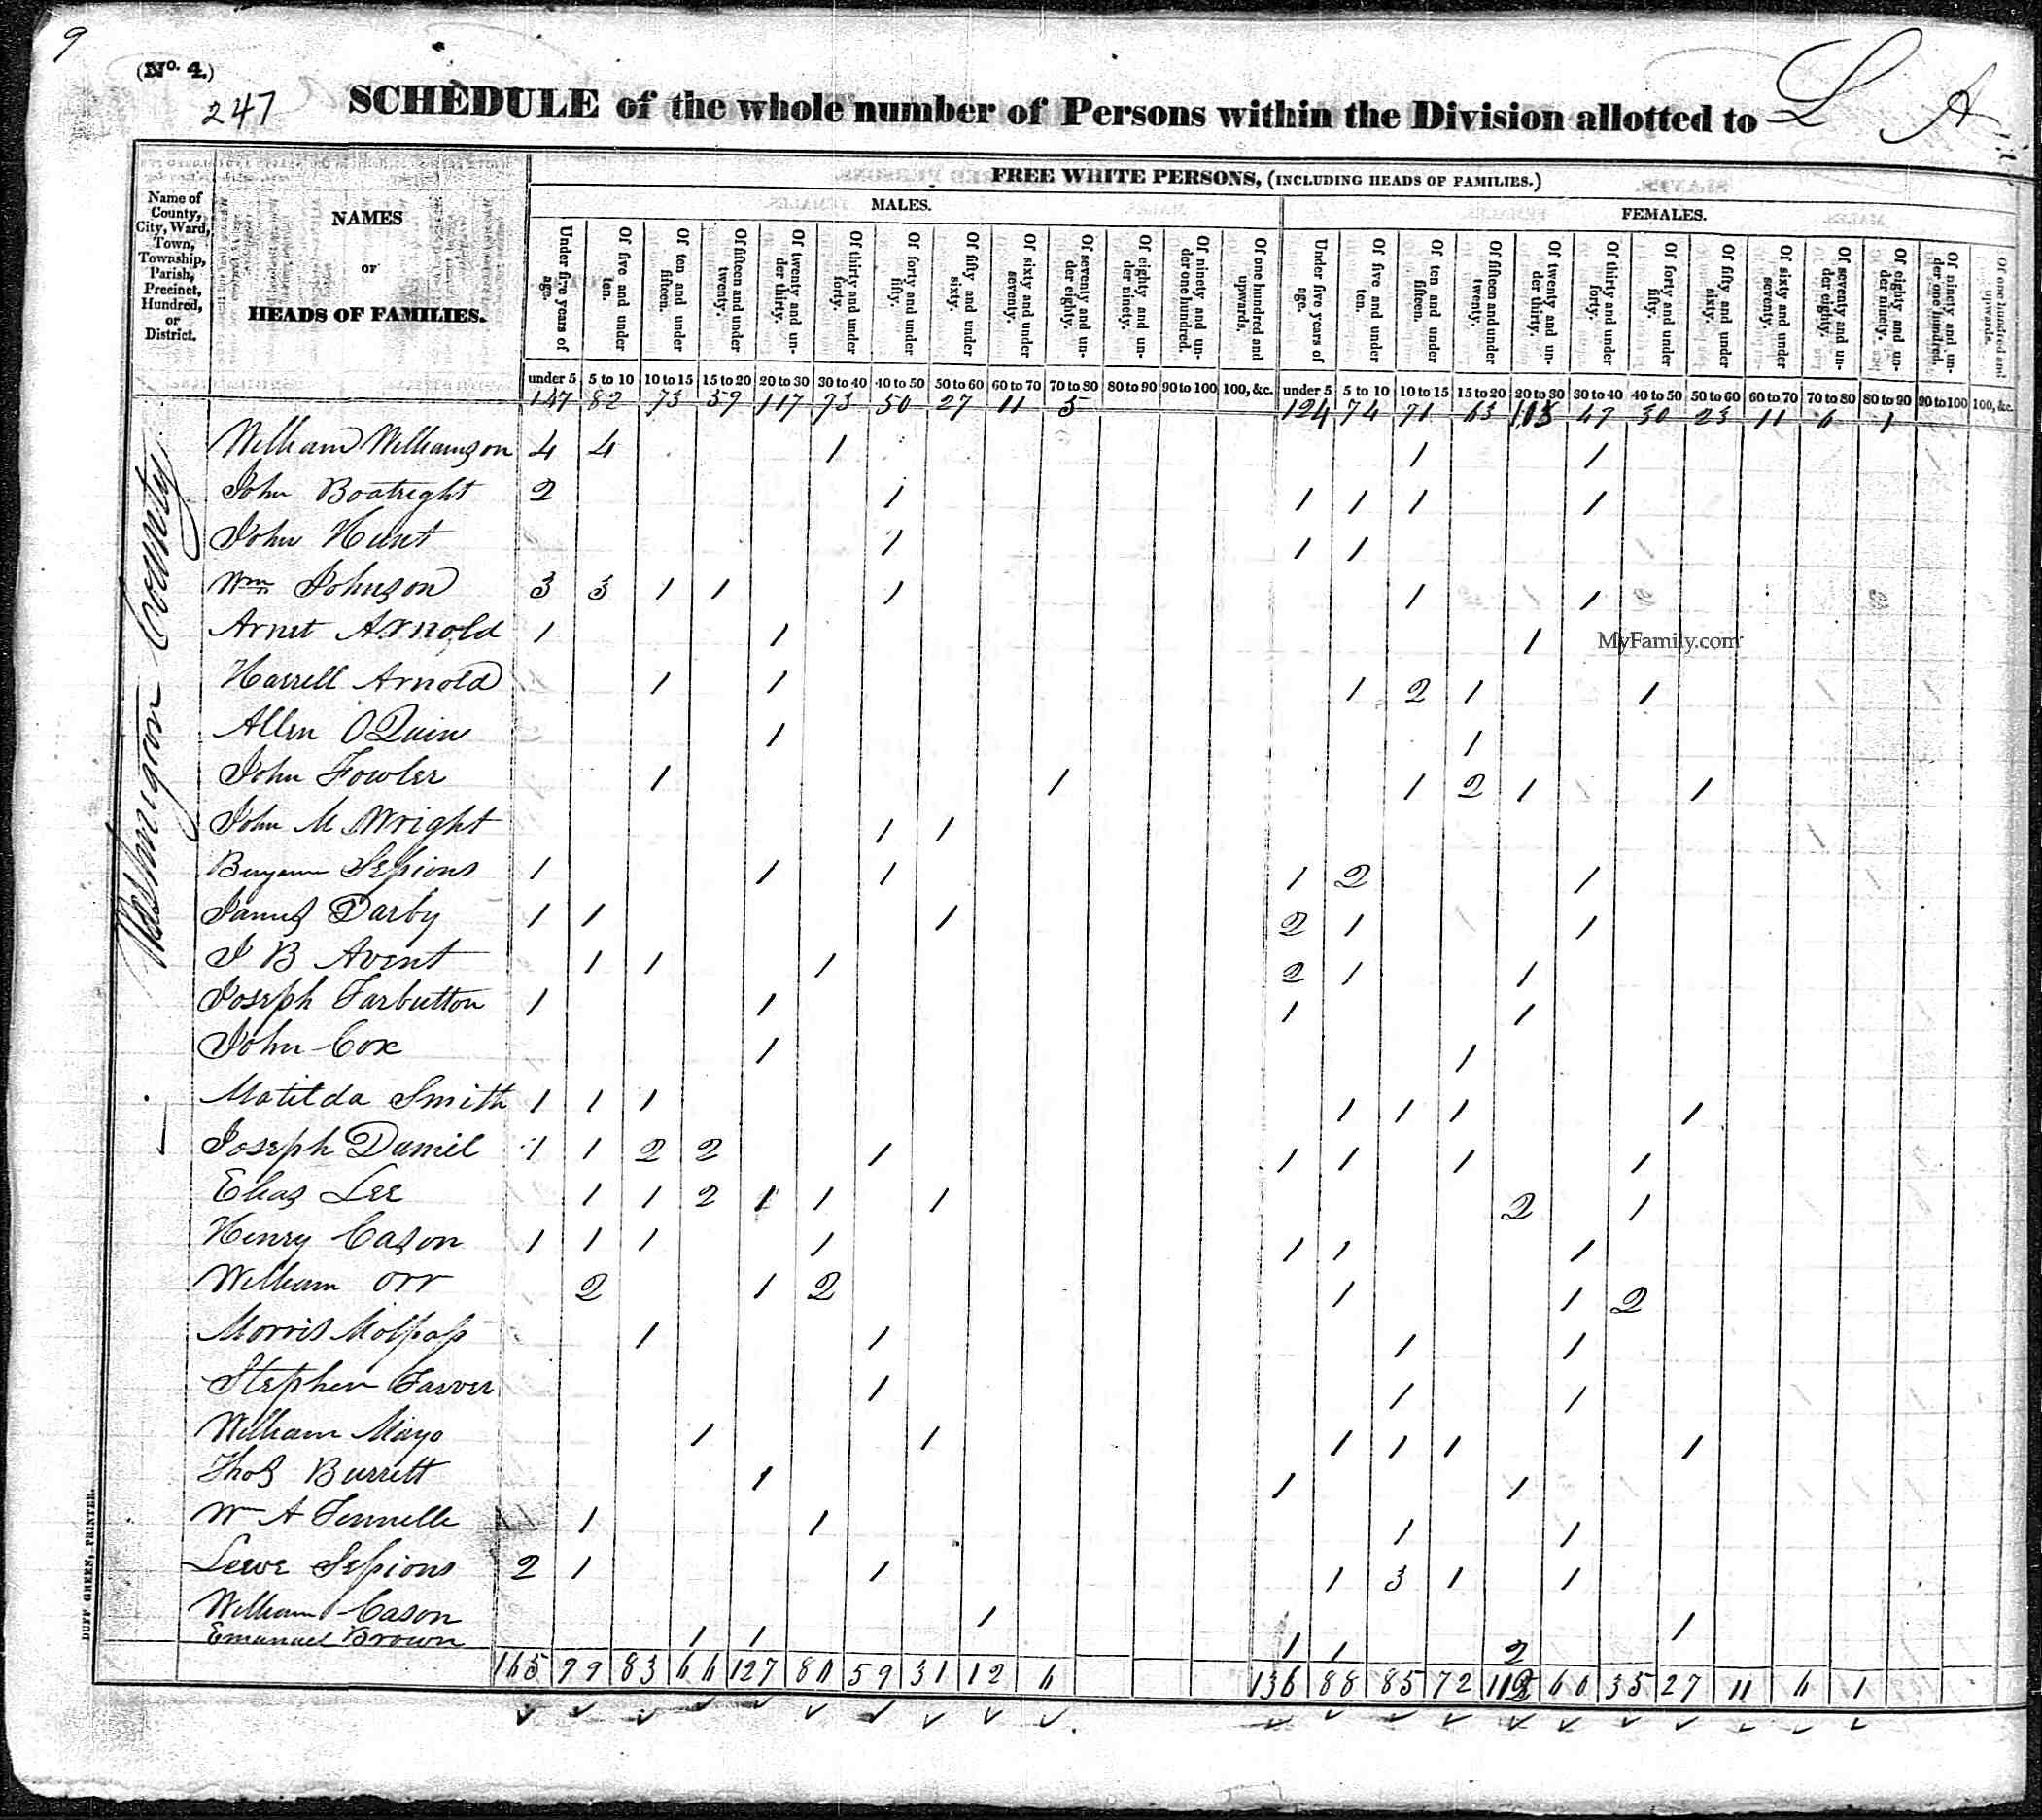 9
(No. 4.)
247
SCHEDULE of the whole number of Persons within the Division allotted to L A
Name of County, City, Ward, Town, Township, Parish, Precinct, Hundred, or District.
NAMES OF HEADS OF FAMILIES.
FREE WHITE PERSONS, (INCLUDING HEADS OF FAMILIES.)
MALES. FEMALES.
Under five years of age. Of five and under ten. Of ten and under fifteen. Of fifteen and under twenty. Of twenty and under thirty. Of thirty and under forty. Of forty and under fifty. Of fifty and under sixty. Of sixty and under seventy. Of seventy and under eighty. Of eighty and under ninety. Of ninety and under one hundred. Of one hundred and upwards. Under five years of age. Of five and under ten. Of ten and under fifteen. Of fifteen and under twenty. Of twenty and under thirty. Of thirty and under forty. Of forty and under fifty. Of fifty and under sixty. Of sixty and under seventy. Of seventy and under eighty. Of eighty and under ninety. Of ninety and under one hundred. Of one hundred and upwards.
under 5 5 to 10 10 to 15 15 to 20 20 to 30 30 to 40 40 to 50 50 to 60 60 to 70 70 to 80 80 to 90 90 to 100 100, &c. under 5 5 to 10 10 to 15 15 to 20 20 to 30 30 to 40 40 to 50 50 to 60 60 to 70 70 to 80 80 to 90 90 to 100 100, &c.
147 82 73 59 117 73 50 27 11 5 124 74 71 63 47 30 23 11 6 1
Washington County
William Williamson 4 4 1 1 1
John Boatright 2 1 1 1 1 1
John Hunt 1 1 1
Wm Johnson 3 3 1 1 1 1 1
Arnet Arnold 1 1 1
MyFamily.com
Harrell Arnold 1 1 1 2 1 1
Allen OQuin 1 1
John Fowler 1 1 1 2 1 1
John M Wright 1 1
Benjamin Sessions 1 1 1 1 2 1
James Darby 1 1 1 2 1 1
J B Avent 1 1 1 2 1 1
Joseph Tarbutton 1 1 1 1
John Cox 1 1
Matilda Smith 1 1 1 1 1 1 1
Joseph Daniel 1 1 2 2 1 1 1 1 1
Elias Lee 1 1 2 1 1 1 2 1
Henry Cason 1 1 1 1 1 1 1
William Orr 2 1 2 1 1 2
Morris Molpass 1 1 1 1
Stephen Tarver 1 1 1
William Mayo 1 1 1 1 1 1
Thos Burrett 1 1 1
Wm A Tennelle 1 1 1 1
Sessions 2 1 1 1 3 1 1
William Cason 1 1
Emanuel Brown 1 1 1 1 2
165 99 83 66 127 80 59 31 12 6 136 88 85 72 60 35 27 11 6 1
DUFF GREEN, PRINTER.